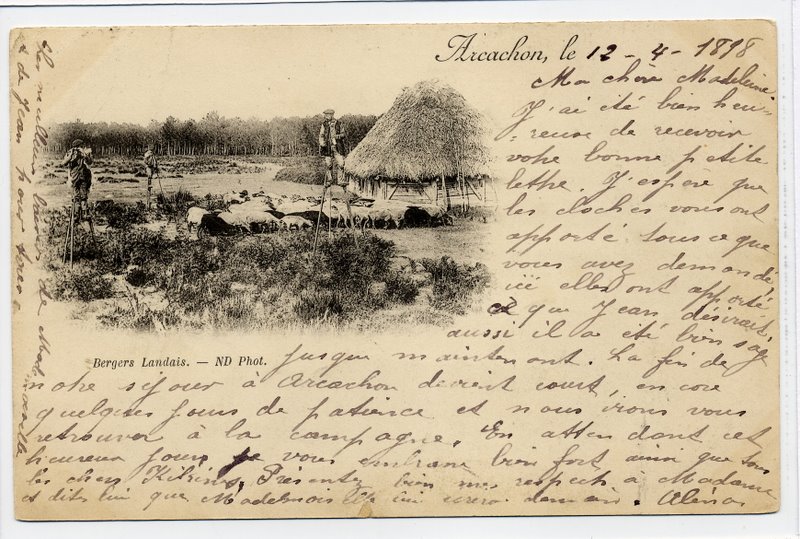 Arcachon, le 12-4-1898
Ma chère Madeleine
J'ai été bien heu-
reuse de recevoir
votre bonne petite
lettre. J'espère que
les cloches vous ont
apporté tous ce que
vous avez demandé,
ici elles ont apporté
ce que Jean désirait
aussi il a été bien sage
jusque maintenont. La fin de
notre séjour à Arcachon devient court, encore
quelques jours de patience et nous irons vous
retrouver à la campagne. En attendant cet
heureux jour je vous embrasse bien fort ainsi que tous
les chers. Présentez bien mes respects à Madame
et dites lui que Mademoiselle lui demain.
Bergers Landais. — ND Phot.
Les meilleurs baisers de Mademoiselle
& de Jean pour tous